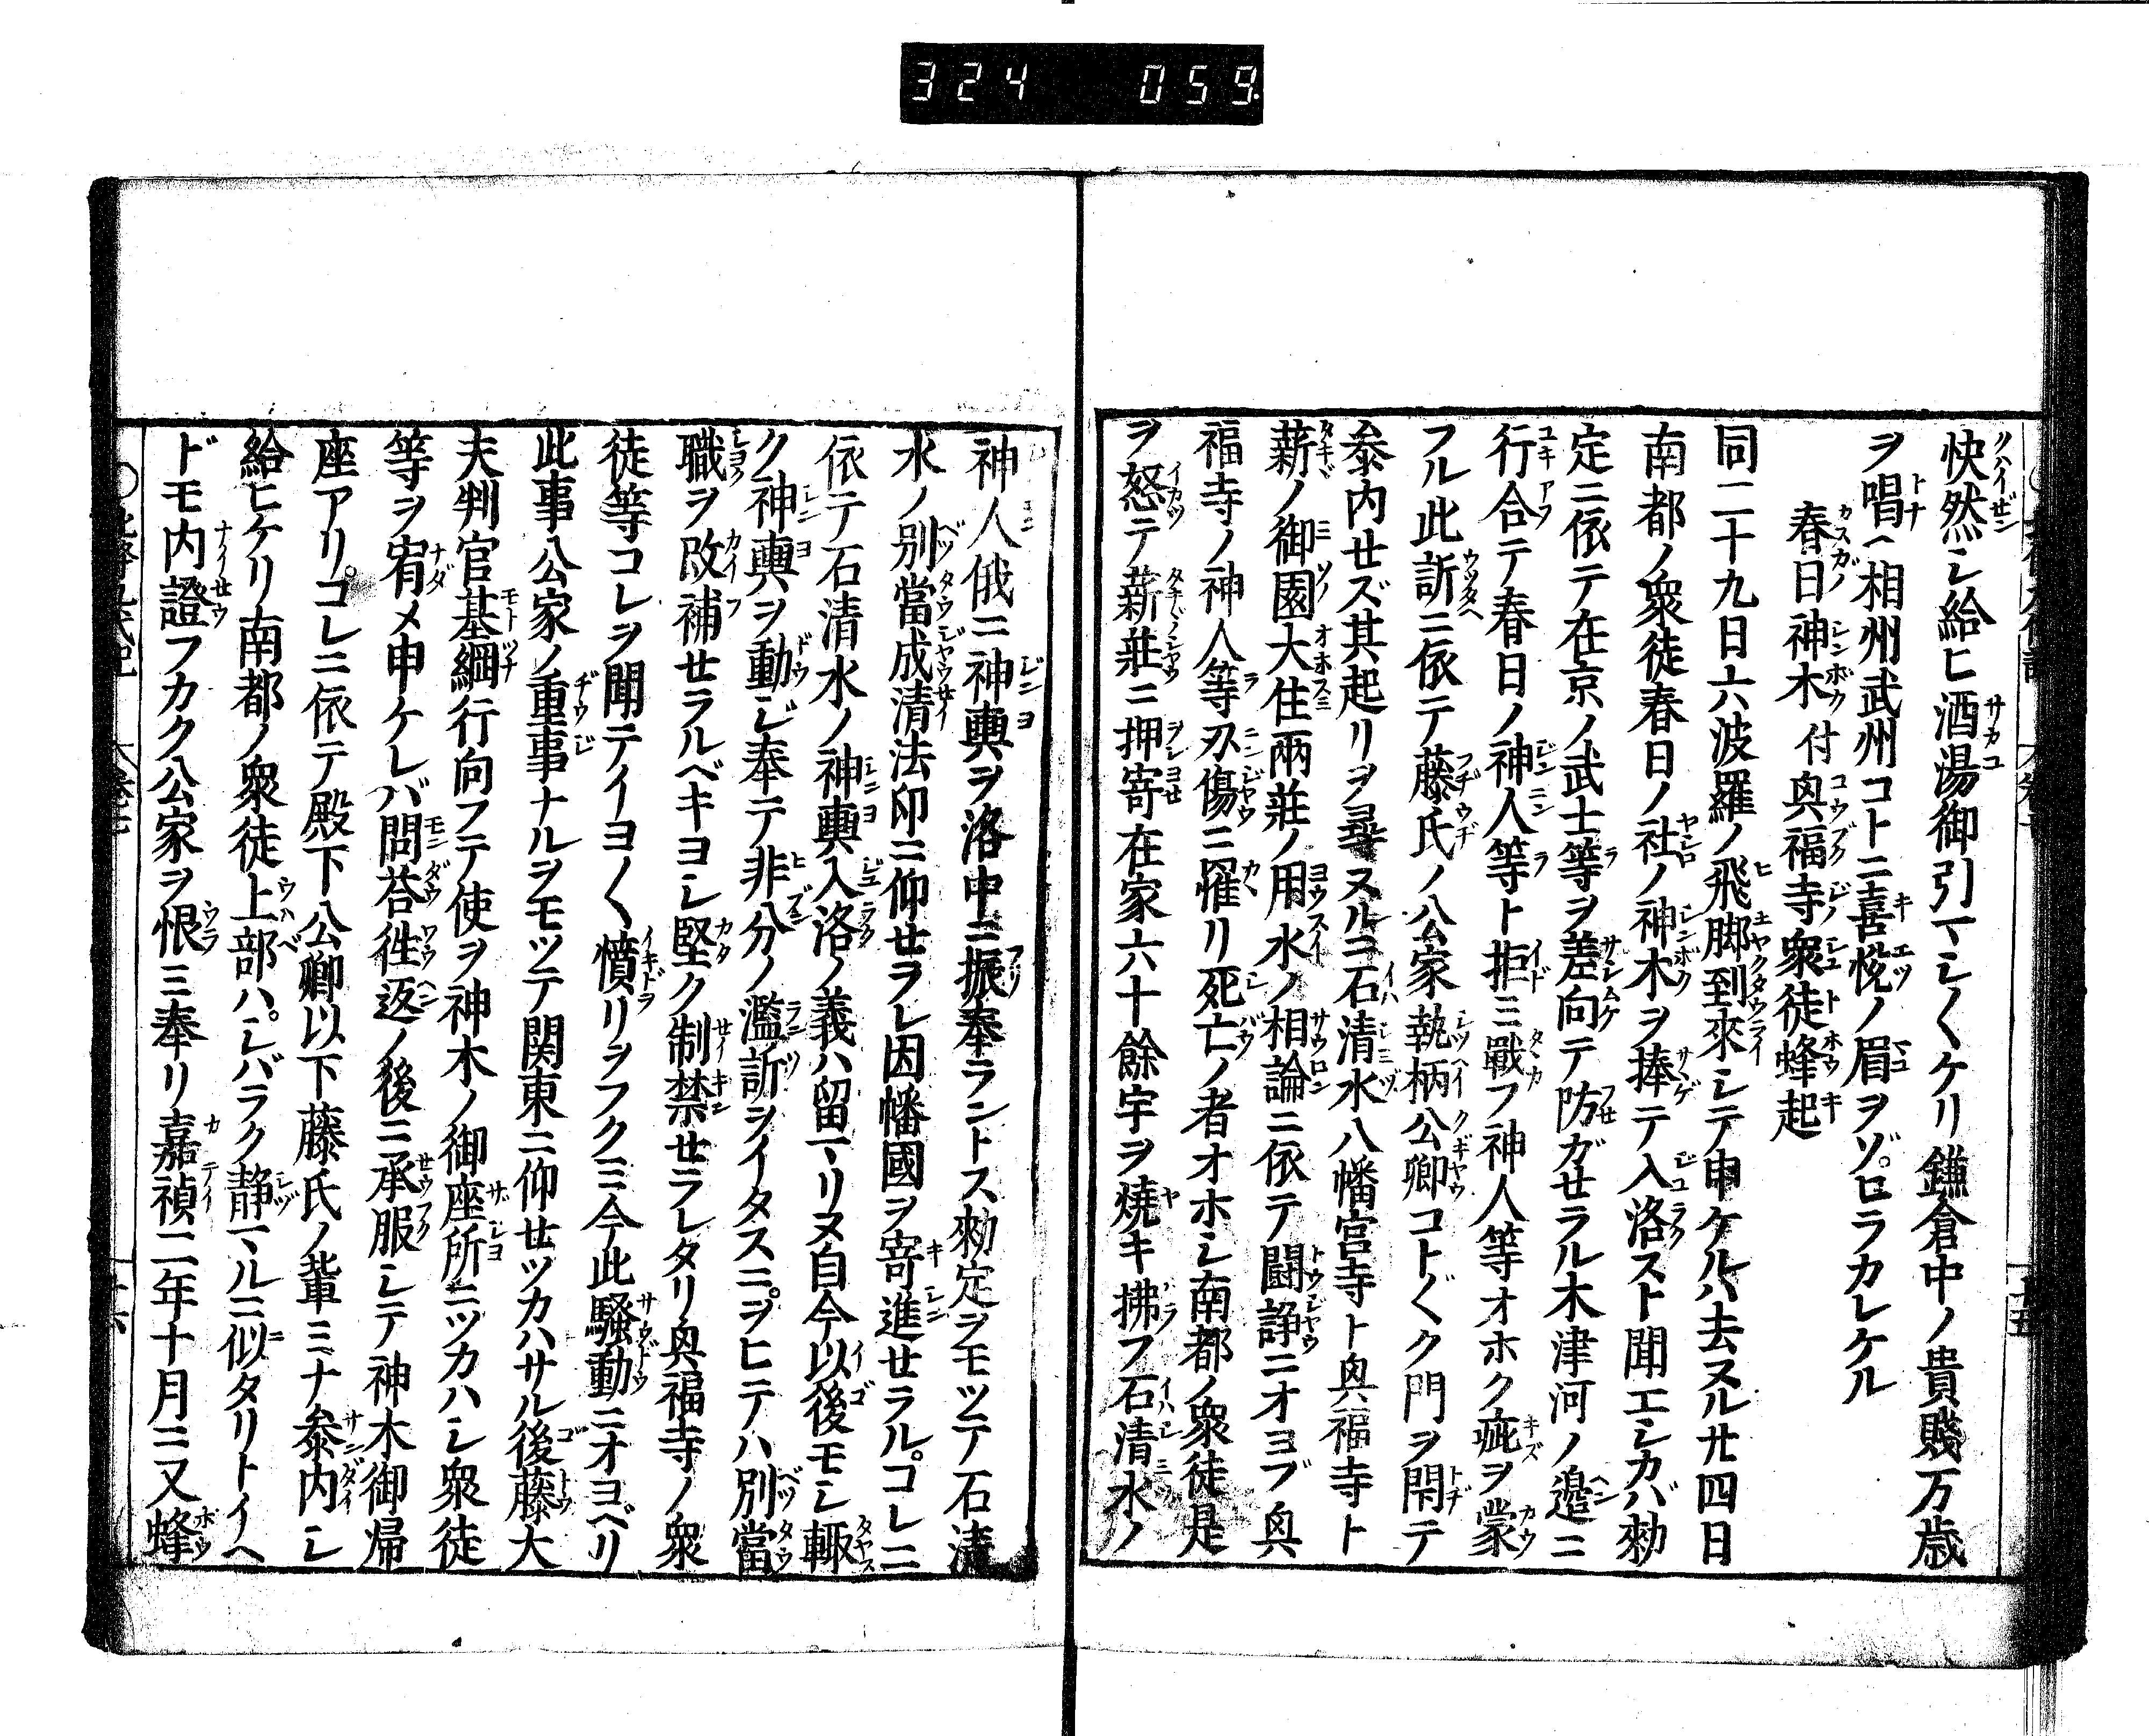 324 059
快然シ給ヒ酒湯御引マシ〱ケリ鎌倉中ノ貴賤万歳
ヲ唱ヘ相州武州コトニ喜悦ノ眉ヲゾヒラカレケル
春日神木付興福寺衆徒蜂起
同二十九日六波羅ノ飛脚到來シテ申ケルハ去ヌル廿四日
南都ノ衆徒春日ノ社ノ神木ヲ捧テ入洛スト聞エシカバ勅
定ニ依テ在京ノ武士等ヲ差向テ防ガセラル木津河ノ邊ニ
行合テ春日ノ神人等ト拒ミ戰フ神人等オホク疵ヲ蒙
フル此訴ニ依テ藤氏ノ公家執柄公卿コト〲ク門ヲ閇テ
參内セズ其起リヲ尋ヌルニ石清水八幡宮寺ト興福寺ト
薪ノ御園大住兩莊ノ用水ノ相論ニ依テ鬪諍ニオヨブ興
福寺ノ神人等刃傷ニ罹リ死亡ノ者オホシ南都ノ衆徒是
ヲ怒テ薪莊ニ押寄在家六十餘宇ヲ燒キ拂フ石清水ノ
神人俄ニ神輿ヲ洛中ニ振奉ラントス勅定ヲモツテ石清
水ノ別當成清法印ニ仰セラレ因幡國ヲ寄進セラル。コレニ
依テ石清水ノ神輿入洛ノ義ハ留マリヌ自今以後モシ輙
ク神輿ヲ動シ奉テ非分ノ濫訴ヲイタスニ。ヲヒテハ別當
職ヲ改補セラルベキヨシ堅ク制禁セラレタリ興福寺ノ衆
徒等コレヲ聞テイヨ〱憤リヲフクミ今此騒動ニオヨベリ
此事公家ノ重事ナルヲモツテ関東ニ仰セツカハサル後藤大
夫判官基綱行向フテ使ヲ神木ノ御座所ニツカハシ衆徒
等ヲ宥メ申ケレバ問荅徃返ノ後ニ承服シテ神木御帰
座アリ。コレニ依テ殿下公卿以下藤氏ノ輩ミナ參内シ
給ヒケリ南都ノ衆徒上部ハ。シバラク静マルニ似タリトイヘ
ドモ内證フカク公家ヲ恨ミ奉リ嘉禎二年十月ニ又蜂